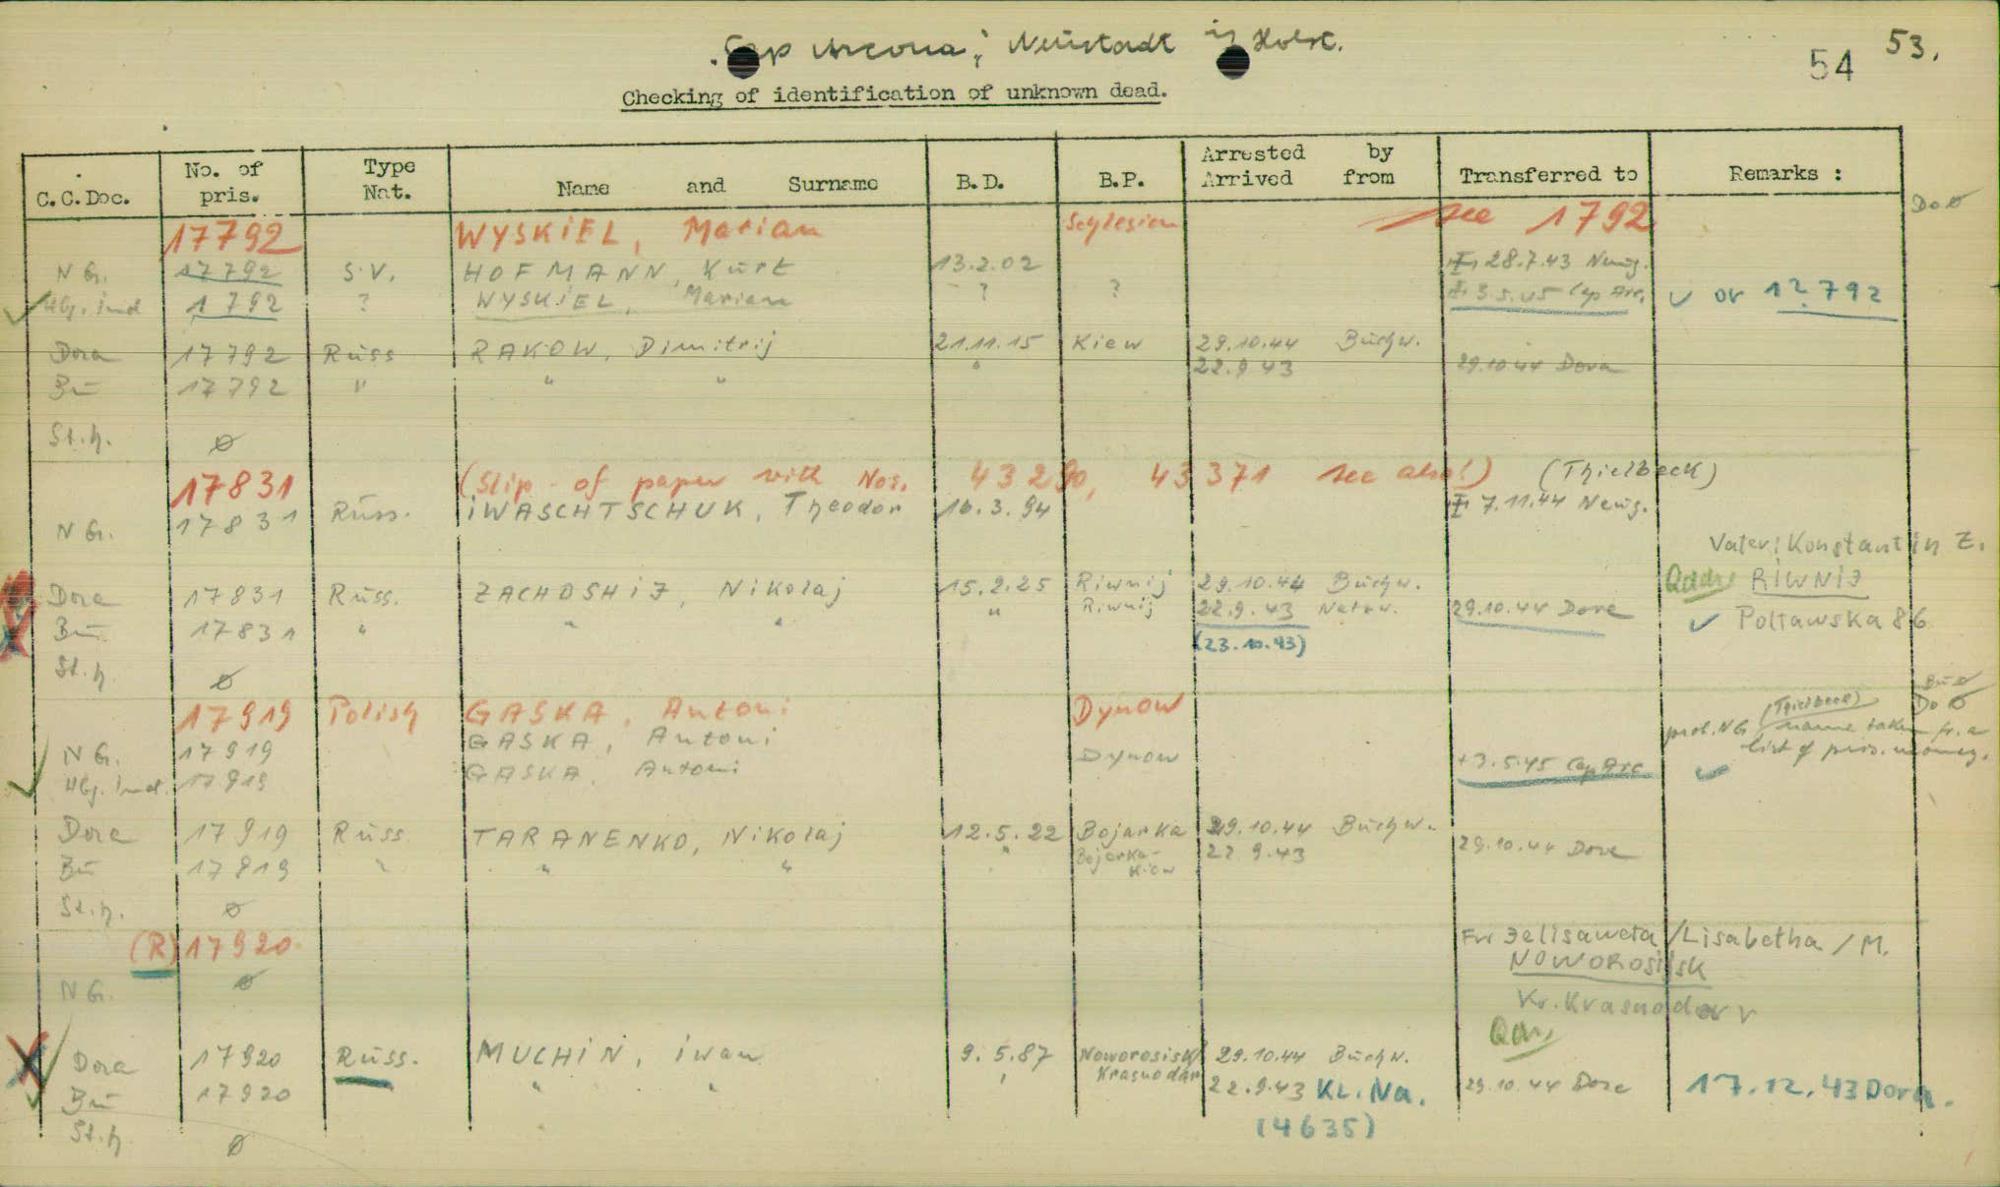 Cap Arcona; Neustadt in Holst.
54 53.
Checking of identification of unknown dead.
C.C.Doc. No. of pris. Type Nat. Name and Surname B.D. B.P. Arrested by Arrived from Transferred to Remarks :
17792 WYSKIEL, Marian Schlesien see 1792 Do ø
N G. 17792 S.V. HOFMANN, Kurt 13.2.02 28.7.43 Neug.
Hbg. ind 1792 ? WYSKIEL, Marian ? ? 3.5.45 Cap Arc. or 12792
Dora 17792 Russ RAKOW, Dimitrij 21.11.15 Kiew 29.10.44 Buchw.
Bu 17792 " " " " 22.9.43 29.10.44 Dora
St.h. ø
17831 (Slip of paper with Nos. 43290, 43371 see also!) (Thielbeck)
N G. 17831 Russ. IWASCHTSCHUK, Theodor 16.3.94 7.11.44 Neug.
Vater: Konstantin Z.
Dora 17831 Russ. ZACHOSHIJ, Nikolaj 15.2.25 Riwnij 29.10.44 Buchw. Addr RIWNIJ
Bu 17831 " " " " Riwnij 22.9.43 Natzw. 29.10.44 Dora Poltawska 86
(23.10.43)
St.h. ø
Bu ø
17919 Polish GASKA, Antoni Dynow (Thielbeck) Do ø
N G. 17919 GASKA, Antoni Dynow prob. NG name taken fr. a
Hbg. ind. 17919 GASKA, Antoni +3.5.45 Cap Arc list of pris. Neueng.
Dora 17919 Russ TARANENKO, Nikolaj 12.5.22 Bojarka 29.10.44 Buchw.
Bu 17919 " " " " Bojarka- Kiew 22.9.43 29.10.44 Dora
St.h. ø
(R) 17920 Fr. Jelisaweta /Lisabetha / M.
N G. ø NOWOROSIJSK
Kr. Krasnodar
Adr.
Dora 17920 Russ. MUCHIN, Iwan 9.5.87 Noworosisk/ 29.10.44 Buchw.
Bu 17920 " " " Krasnodar 22.9.43 KL. Na. 29.10.44 Dora 17.12.43 Dora.
(4635)
St.h. ø